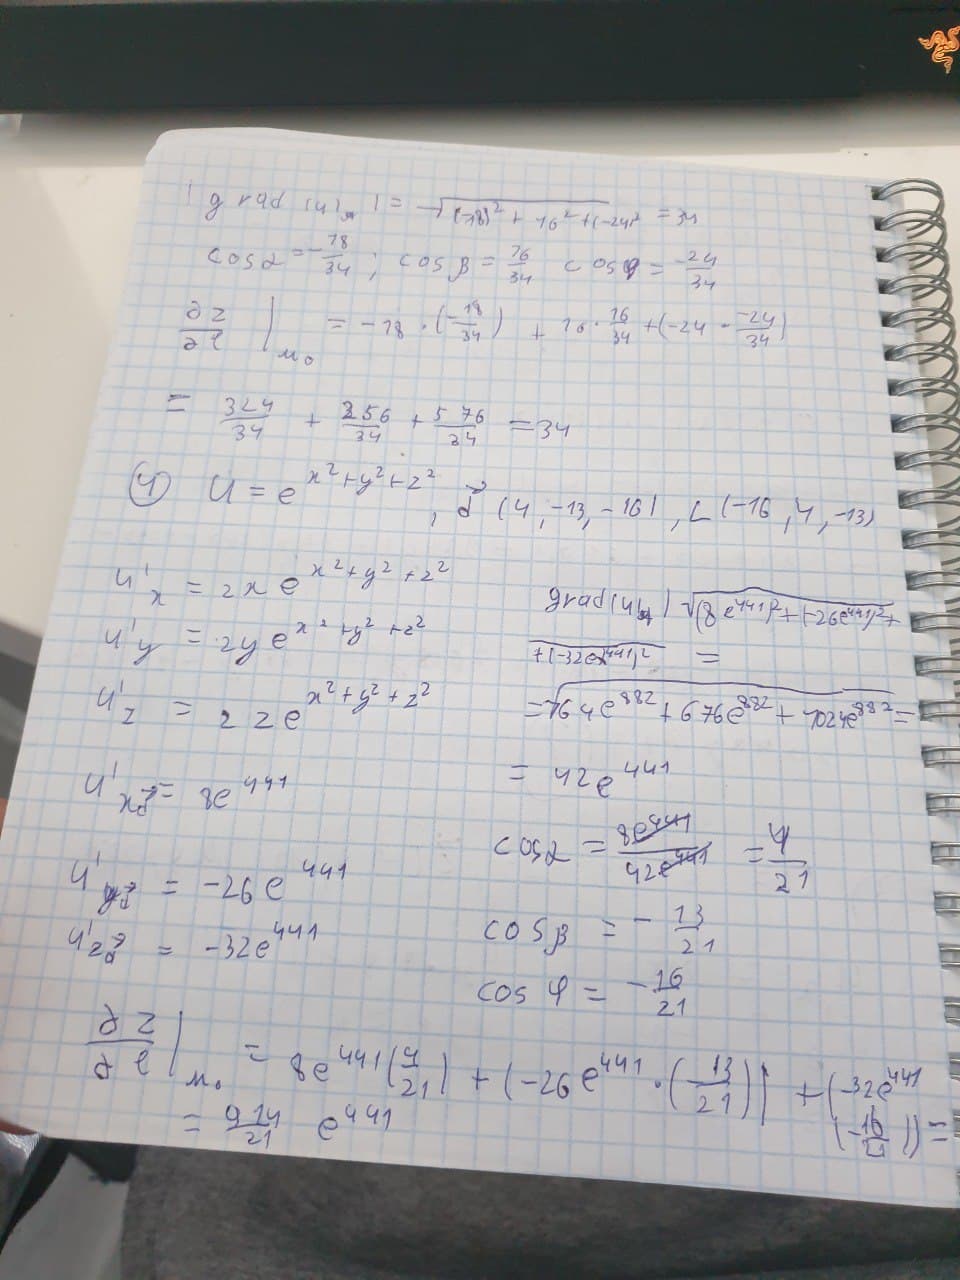 |grad(u)_A| = √((-18)² + 16² + (-24)²) = 34
cosα = -18/34 ; cosβ = 16/34 cosφ = -24/34
∂z/∂l |_M₀ = -18 · (-18/34) + 16 · 16/34 + (-24 · -24/34)
= 324/34 + 256/34 + 576/34 = 34
④ U = e^(x²+y²+z²) , d⃗ (4, -13, -16) , L (-16, 4, -13)
u'_x = 2x e^(x²+y²+z²)
u'_y = 2y e^(x²+y²+z²)
u'_z = 2z e^(x²+y²+z²)
u'_xd⃗ = 8e^441
u'_yd⃗ = -26e^441
u'_zd⃗ = -32e^441
grad(u)_A) √((8e^441)² + (-26e^441)² +
+(-32e^441)² =
= √(64e^882 + 676e^882 + 1024e^882) =
= 42e^441
cosα = 8e^441/42e^441 = 4/21
cosβ = - 13/21
cosφ = - 16/21
∂z/∂l |_M₀ = 8e^441 (4/21) + (-26e^441 · (-13/21)) + (-32e^441
(-16/21)) =
= 914/21 e^441